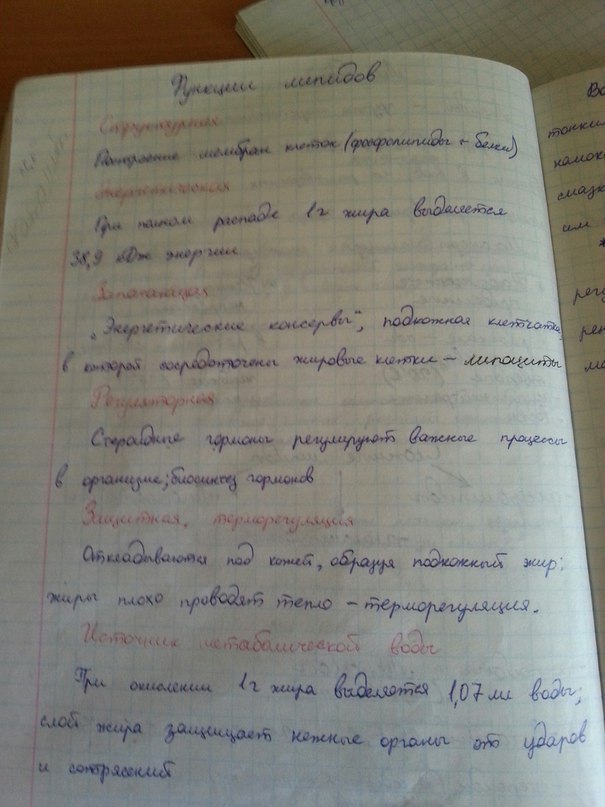 Функции липидов
Структурная
Построение мембран клеток (фосфолипиды + белки)
Энергетическая
При полном распаде 1 г жира выделяется
38,9 кДж энергии
Запасающая
„Энергетические консервы", подкожная клетчатка,
в которой сосредоточены жировые клетки – липоциты
Регуляторная
Стероидные гормоны регулируют важные процессы
в организме; биосинтез гормонов
Защитная, терморегуляция
Откладываются под кожей, образуя подкожный жир;
жиры плохо проводят тепло – терморегуляция.
Источник метаболической воды
При окислении 1 г жира выделяется 1,07 мл воды;
слой жира защищает нежные органы от ударов
и сотрясений
Во
тонки
намок
смазк
им
рег
рен